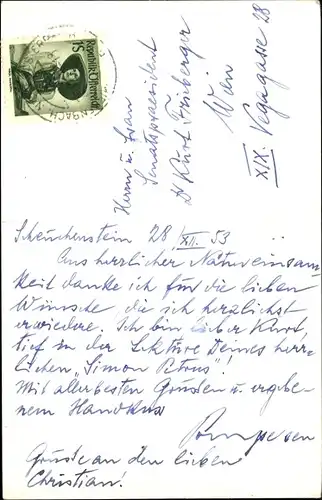 Herrn u. Frau
Senatspraesident
Dr Kurt Frieberger
Wien
XIX. Vegagasse 28
1S
Republik Österreich
Scheuchenstein 28/XII. 53
Aus herrlicher Natureinsam-
keit danke ich für die lieben
Wünsche, die ich herzlichst
erwiedere. Ich bin, lieber Kurt,
tief in der Lektüre Deines herr-
lichen „Simon Petrus"!
Mit allerbesten Grüssen u. ergebe-
nem Handkuss
Grüsse an den lieben
Christian!